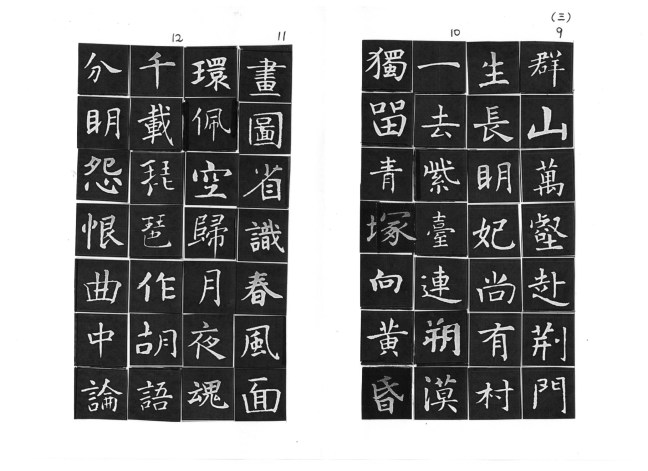 (三)
9
10
群山萬壑赴荆門
生長明妃尚有村
一去紫臺連朔漠
獨畱青塚向黃昏
11
12
畫圖省識春風面
環佩空歸月夜魂
千載琵琶作胡語
分明怨恨曲中論